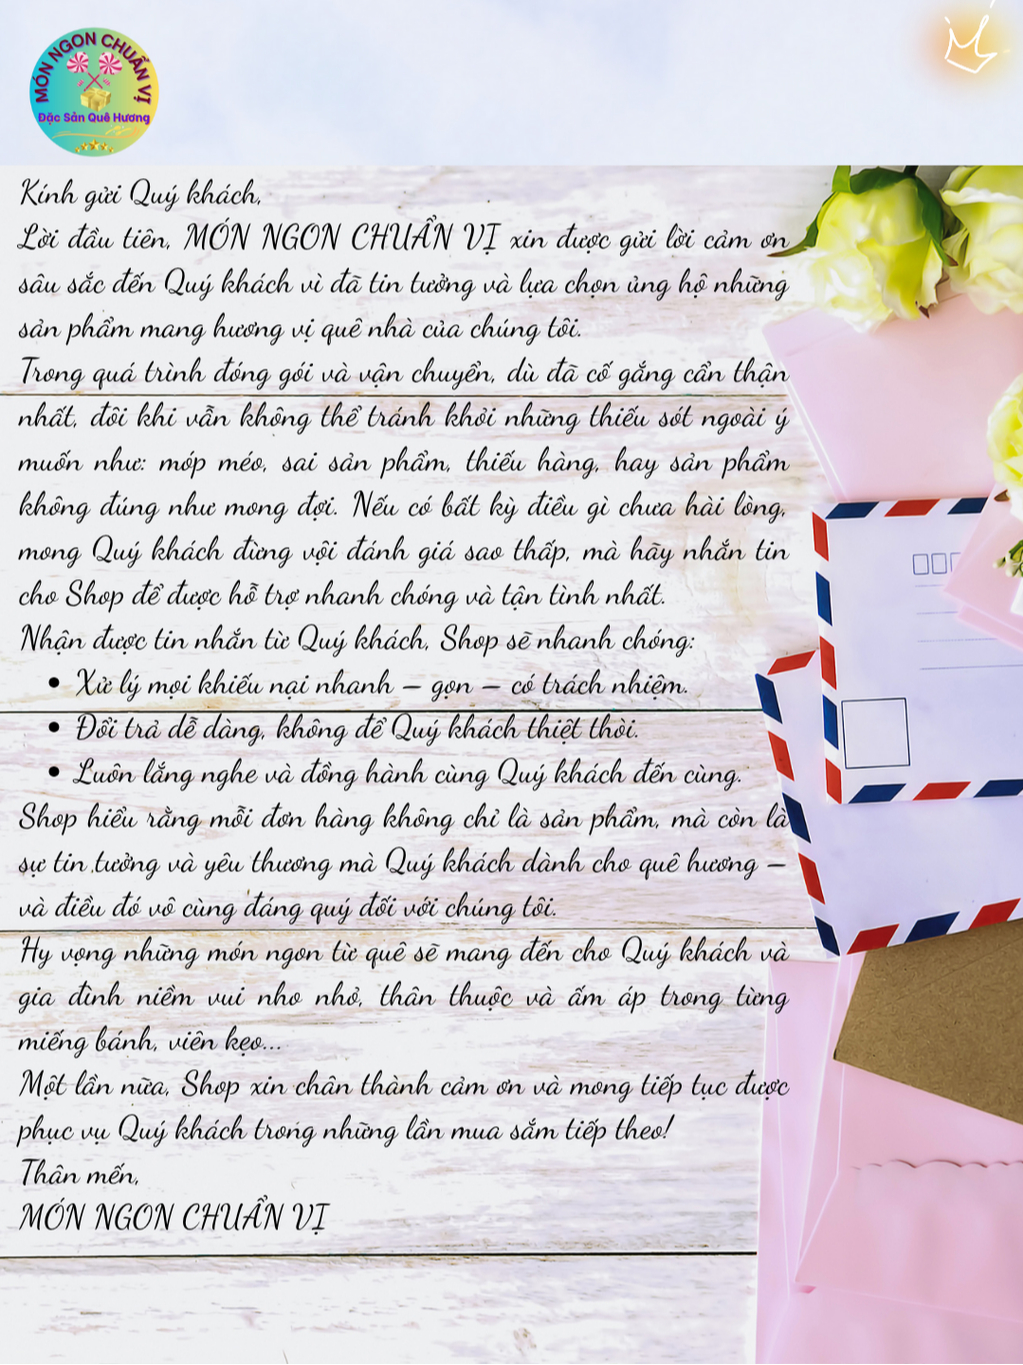 MÓN NGON CHUẨN VỊ
Đặc Sản Quê Hương
Kính gửi Quý khách,
Lời đầu tiên, MÓN NGON CHUẨN VỊ xin được gửi lời cảm ơn
sâu sắc đến Quý khách vì đã tin tưởng và lựa chọn ủng hộ những
sản phẩm mang hương vị quê nhà của chúng tôi.
Trong quá trình đóng gói và vận chuyển, dù đã cố gắng cẩn thận
nhất, đôi khi vẫn không thể tránh khỏi những thiếu sót ngoài ý
muốn như: móp méo, sai sản phẩm, thiếu hàng, hay sản phẩm
không đúng như mong đợi. Nếu có bất kỳ điều gì chưa hài lòng,
mong Quý khách đừng vội đánh giá sao thấp, mà hãy nhắn tin
cho Shop để được hỗ trợ nhanh chóng và tận tình nhất.
Nhận được tin nhắn từ Quý khách, Shop sẽ nhanh chóng:
• Xử lý mọi khiếu nại nhanh – gọn – có trách nhiệm.
• Đổi trả dễ dàng, không để Quý khách thiệt thòi.
• Luôn lắng nghe và đồng hành cùng Quý khách đến cùng.
Shop hiểu rằng mỗi đơn hàng không chỉ là sản phẩm, mà còn là
sự tin tưởng và yêu thương mà Quý khách dành cho quê hương –
và điều đó vô cùng đáng quý đối với chúng tôi.
Hy vọng những món ngon từ quê sẽ mang đến cho Quý khách và
gia đình niềm vui nho nhỏ, thân thuộc và ấm áp trong từng
miếng bánh, viên kẹo...
Một lần nữa, Shop xin chân thành cảm ơn và mong tiếp tục được
phục vụ Quý khách trong những lần mua sắm tiếp theo!
Thân mến,
MÓN NGON CHUẨN VỊ